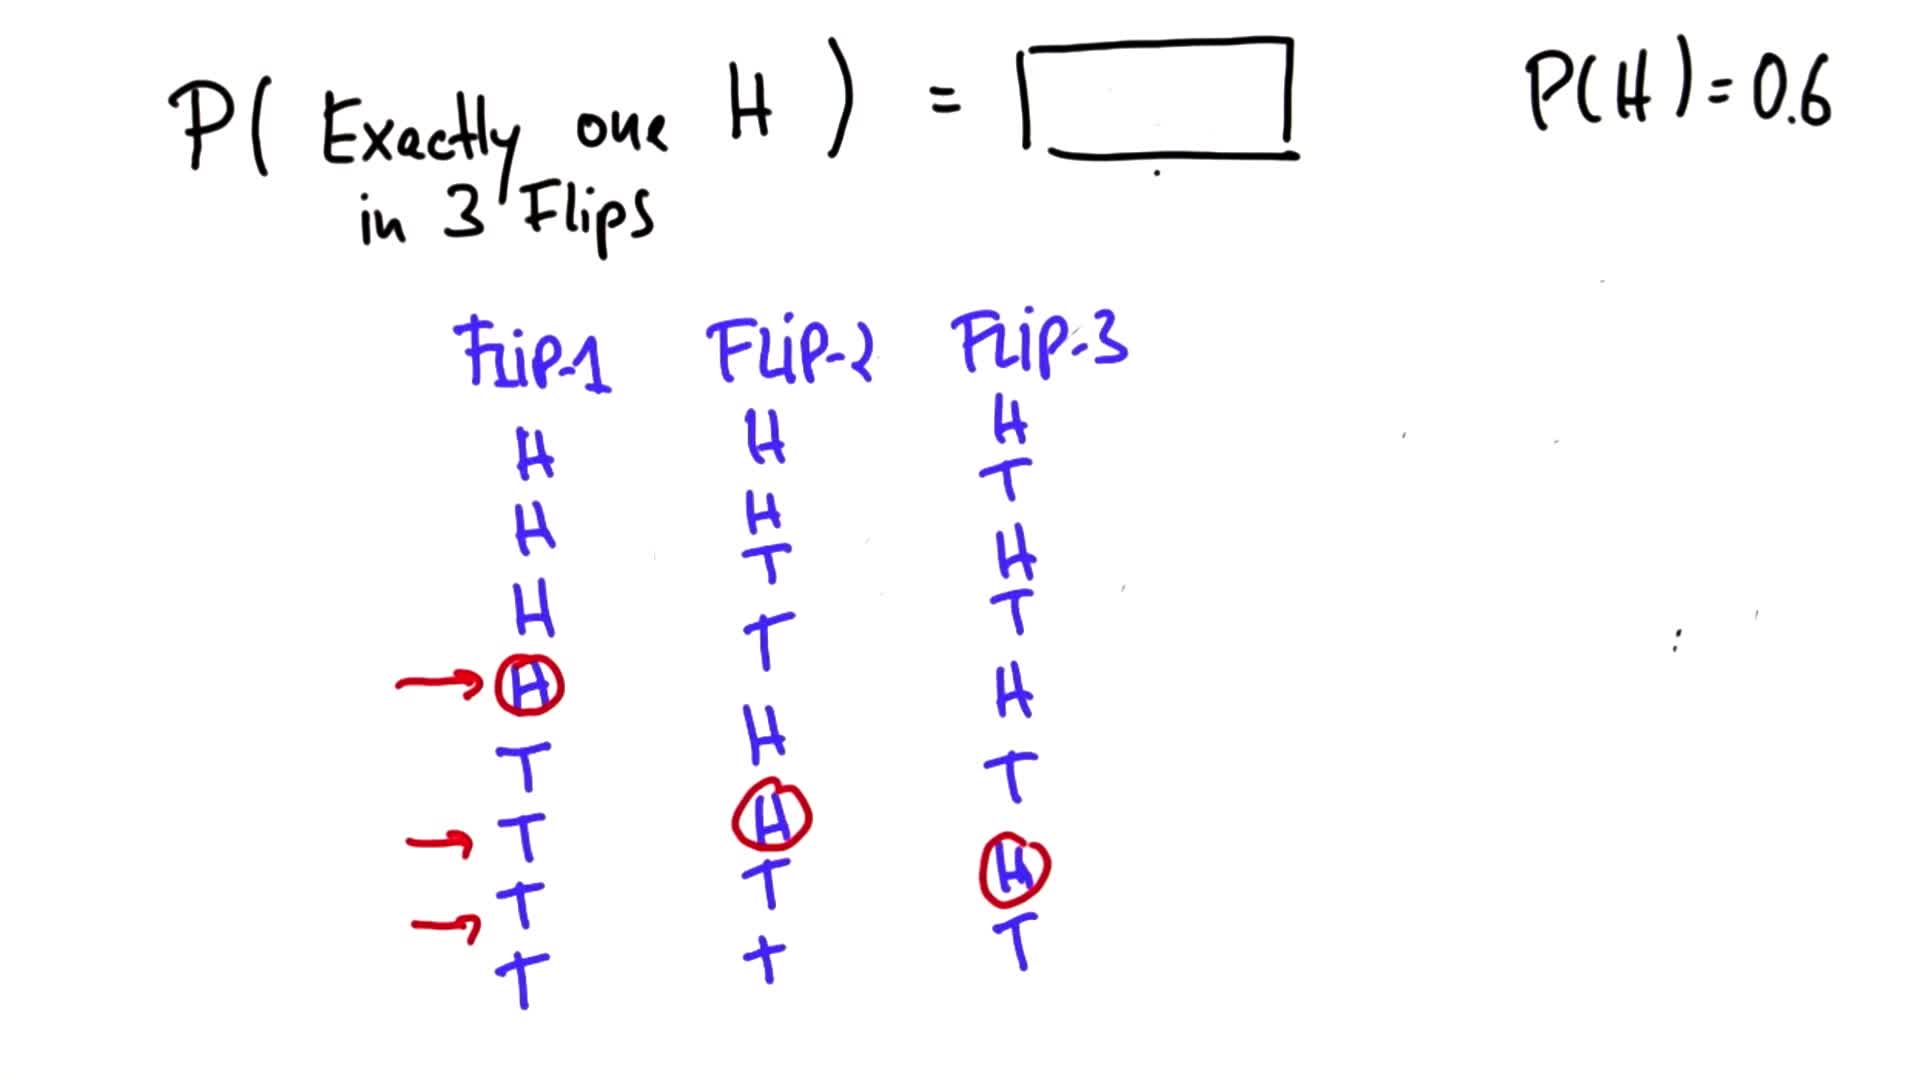 P( Exactly one H ) =
P(H) = 0.6
in 3 Flips
FLiP-1 FLiP-2 FLiP-3
H H H
H H T
H T H
H T T
T H H
T H T
T T H
T T T